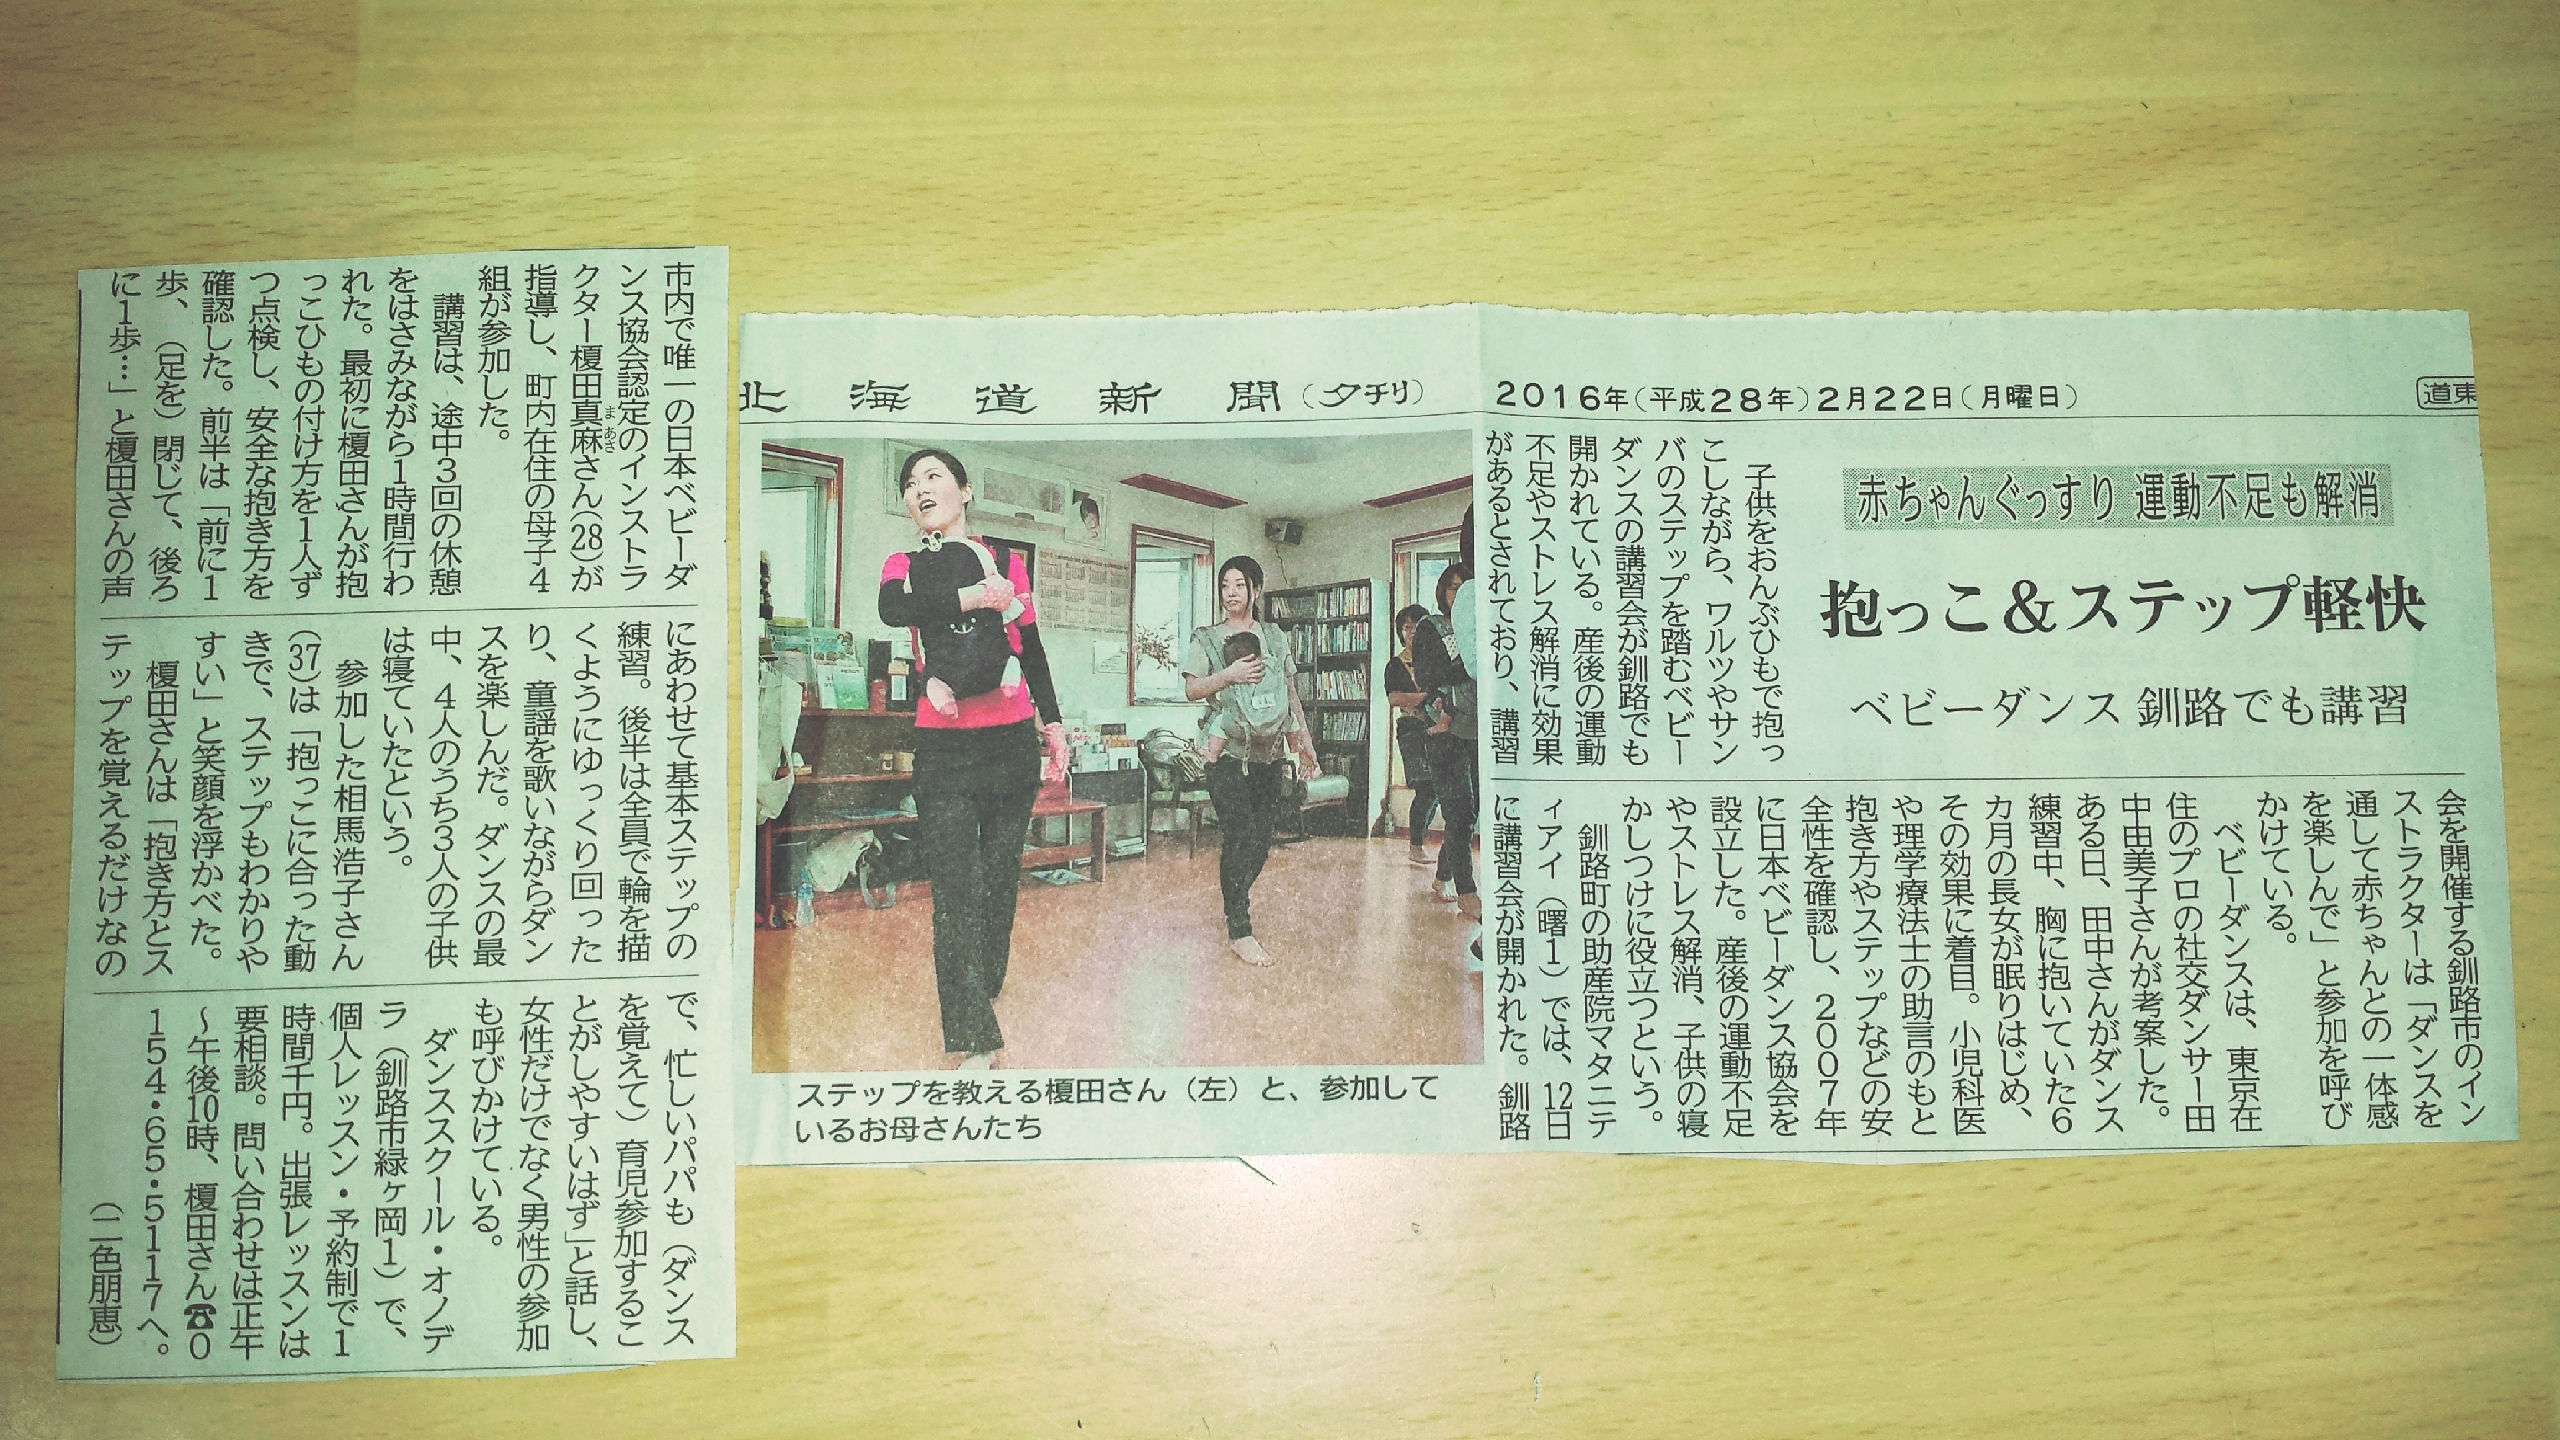 北海道新聞(夕刊)
2016年(平成28年)2月22日(月曜日)
道東
赤ちゃんぐっすり 運動不足も解消
抱っこ&ステップ軽快
ベビーダンス 釧路でも講習
子供をおんぶひもで抱っ
こしながら、ワルツやサン
バのステップを踏むベビー
ダンスの講習会が釧路でも
開かれている。産後の運動
不足やストレス解消に効果
があるとされており、講習
会を開催する釧路市のイン
ストラクターは「ダンスを
通して赤ちゃんとの一体感
を楽しんで」と参加を呼び
かけている。
ベビーダンスは、東京在
住のプロの社交ダンサー田
中由美子さんが考案した。
ある日、田中さんがダンス
練習中、胸に抱いていた6
カ月の長女が眠りはじめ、
その効果に着目。小児科医
や理学療法士の助言のもと
抱き方やステップなどの安
全性を確認し、2007年
に日本ベビーダンス協会を
設立した。産後の運動不足
やストレス解消、子供の寝
かしつけに役立つという。
釧路町の助産院マタニテ
ィアイ(曙1)では、12日
に講習会が開かれた。釧路
ステップを教える榎田さん(左)と、参加して
いるお母さんたち
市内で唯一の日本ベビーダ
ンス協会認定のインストラ
クター榎田真麻さん(28)が
まあさ
指導し、町内在住の母子4
組が参加した。
講習は、途中3回の休憩
をはさみながら1時間行わ
れた。最初に榎田さんが抱
っこひもの付け方を1人ず
つ点検し、安全な抱き方を
確認した。前半は「前に1
歩、(足を)閉じて、後ろ
に1歩…」と榎田さんの声
にあわせて基本ステップの
練習。後半は全員で輪を描
くようにゆっくり回った
り、童謡を歌いながらダン
スを楽しんだ。ダンスの最
中、4人のうち3人の子供
は寝ていたという。
参加した相馬浩子さん
(37)は「抱っこに合った動
きで、ステップもわかりや
すい」と笑顔を浮かべた。
榎田さんは「抱き方とス
テップを覚えるだけなの
で、忙しいパパも(ダンス
を覚えて)育児参加するこ
とがしやすいはず」と話し、
女性だけでなく男性の参加
も呼びかけている。
ダンススクール・オノデ
ラ(釧路市緑ヶ岡1)で、
個人レッスン・予約制で1
時間千円。出張レッスンは
要相談。問い合わせは正午
~午後10時、榎田さん☎0
154・65・5117へ。
(二色朋恵)